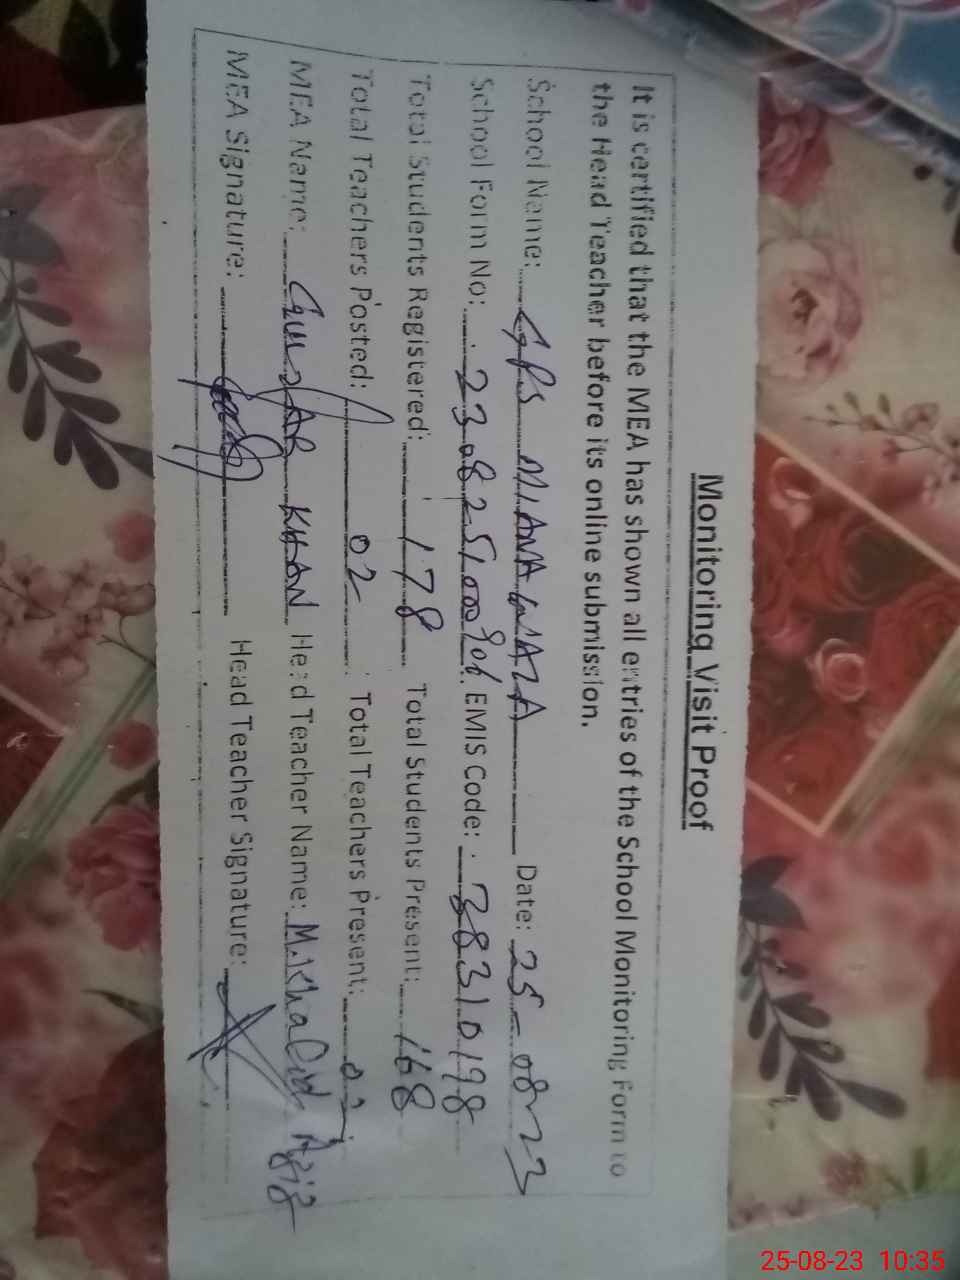 Monitoring Visit Proof
It is certified that the MEA has shown all entries of the School Monitoring Form to
the Head Teacher before its online submission.
School Name: GPS MIANA WAZA Date: 25-08-23
School Form No: 230825100906 EMIS Code: 38310198
Total Students Registered: 178 Total Students Present: 168
Total Teachers Posted: 02 Total Teachers Present: 02
MEA Name: GULZAR KHAN Head Teacher Name: M. Khalid
MEA Signature: Head Teacher Signature:
25-08-23 10:35